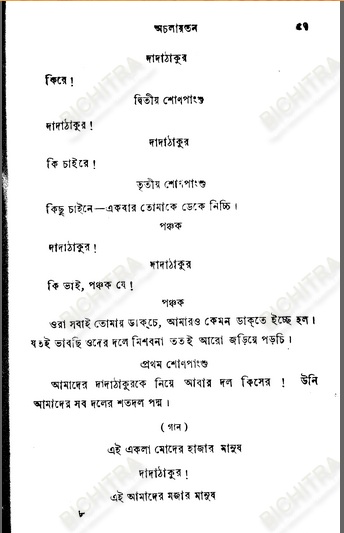 অচলায়তন ৫৭
দাদাঠাকুর
কিরে !
দ্বিতীয় শোণপাংশু
দাদাঠাকুর !
দাদাঠাকুর
কি চাইরে !
তৃতীয় শোণপাংশু
কিছু চাইনে—একবার তোমাকে ডেকে নিচ্চি ।
পঞ্চক
দাদাঠাকুর !
দাদাঠাকুর
কি ভাই, পঞ্চক যে !
পঞ্চক
ওরা সবাই তোমায় ডাক্‌চে, আমারও কেমন ডাক্‌তে ইচ্ছে হল ।
যতই ভাবছি ওদের দলে মিশবনা ততই আরো জড়িয়ে পড়চি ।
প্রথম শোণপাংশু
আমাদের দাদাঠাকুরকে নিয়ে আবার দল কিসের ! উনি
আমাদের সব দলের শতদল পদ্ম ।
( গান )
এই একলা মোদের হাজার মানুষ
দাদাঠাকুর !
এই আমাদের মজার মানুষ
৮
BICHITRA
BICHITRA
BICHITRA
BICHITRA
BICHITRA
BICHITRA